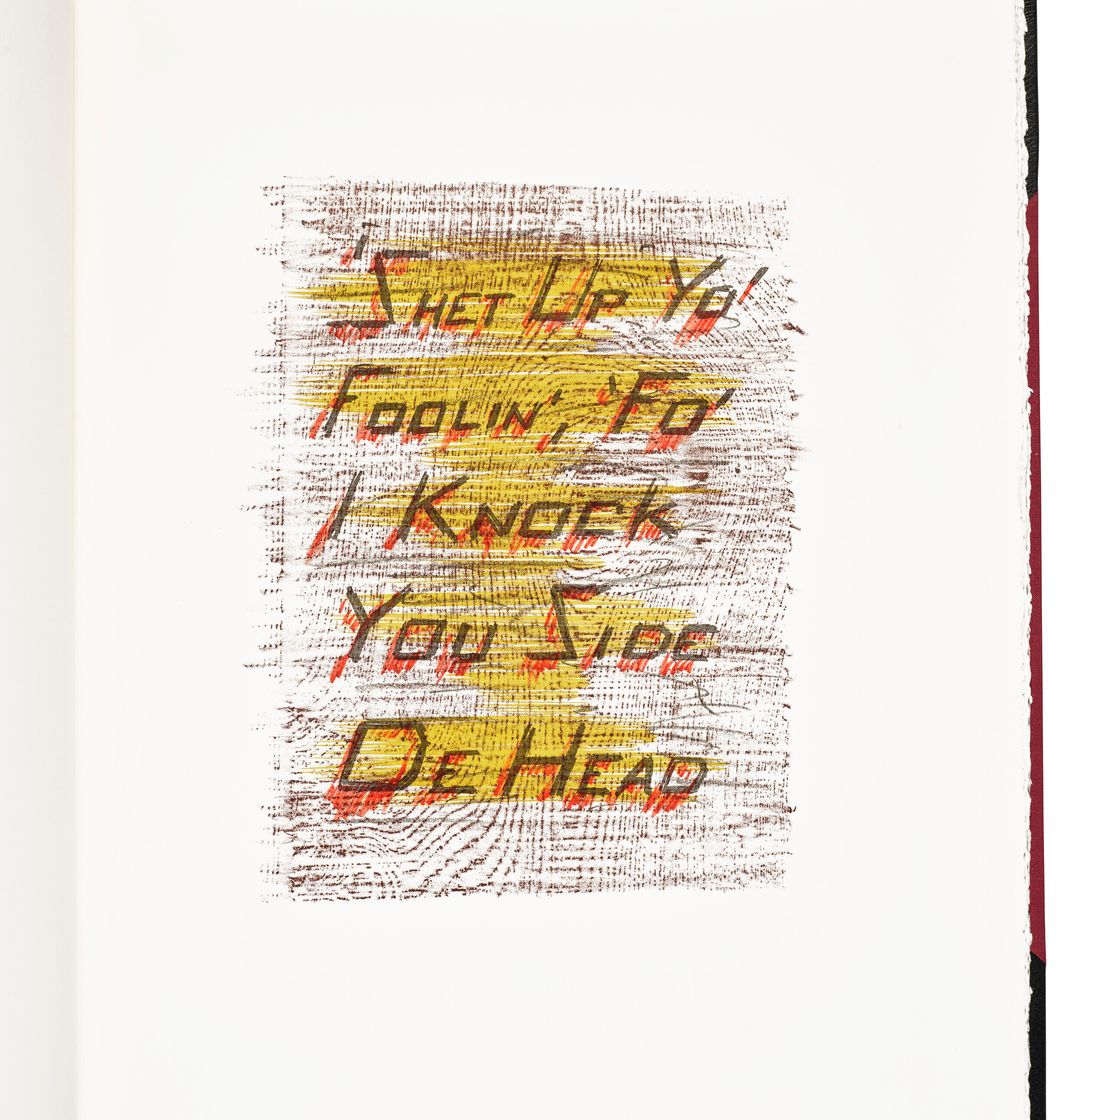 'Shet Up Yo'
Foolin', 'Fo'
I Knock
You Side
De Head